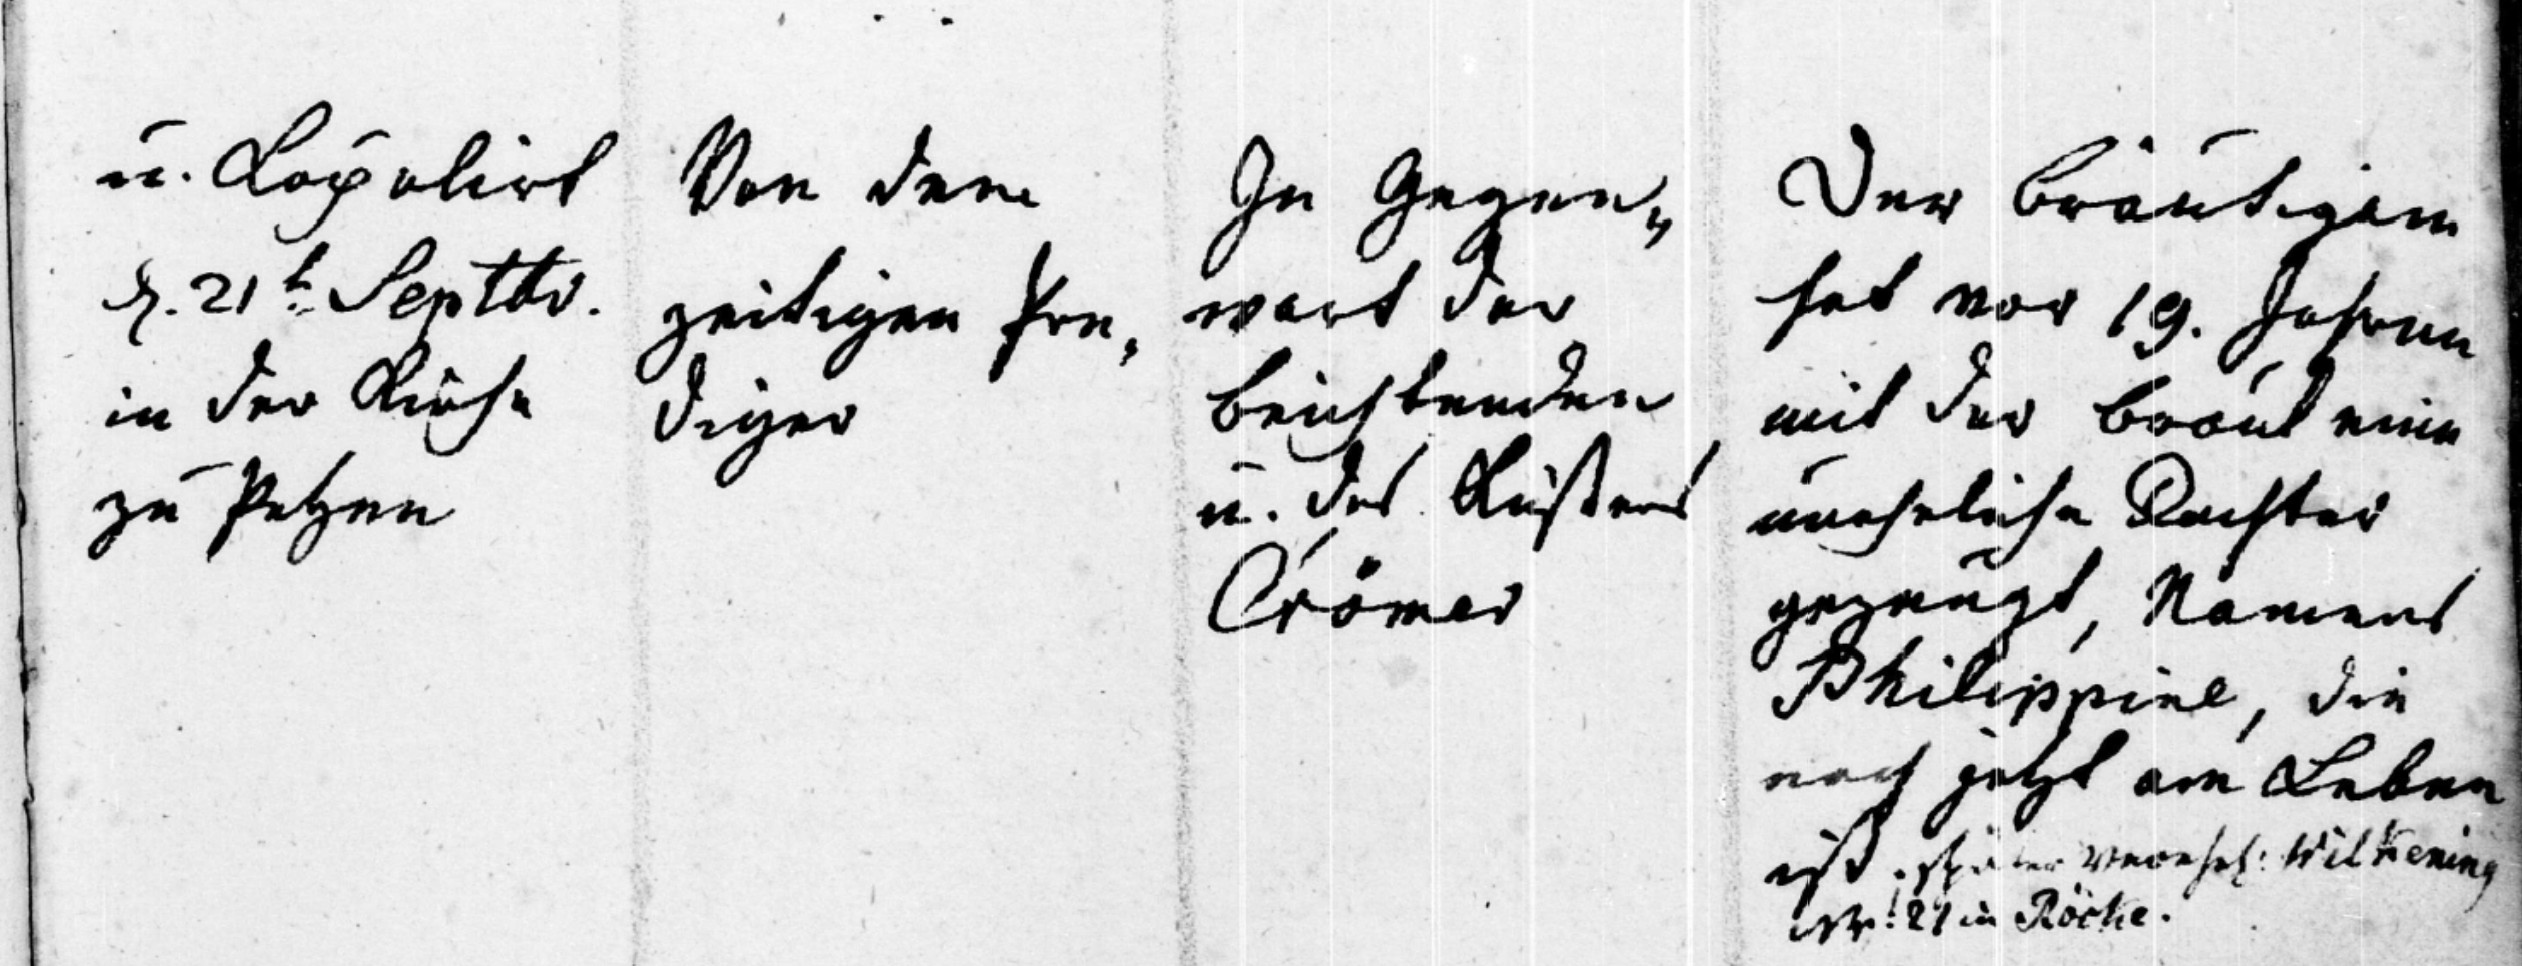 u. Copulirt
d. 21t. Septbr.
in der Kirche
zu Petzen
Von dem
zeitigen Pre„
diger
In Gegen„
wart der
Beichtenden
u. des Küsters
Crömer
Der Bräutigam
hat vor 19. Jahren
mit der Braut eine
uneheliche Tochter
gezeugt, Namens
Philippine, die
noch jetzt am Leben
ist. später verehel: Wilkening
Nr: 21 in Röcke.